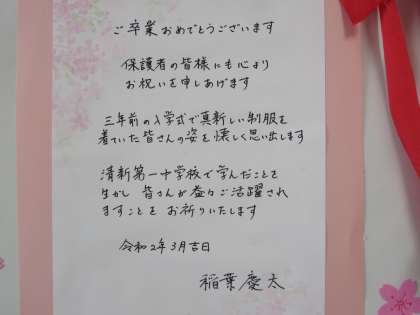 ご卒業おめでとうございます
保護者の皆様にも心より
お祝いを申しあげます
三年前の入学式で真新しい制服を
着ていた皆さんの姿を懐しく思い出します
清新第一中学校で学んだことを
生かし 皆さんが益々ご活躍され
ますことを お祈りいたします
令和2年3月吉日
稲葉慶太